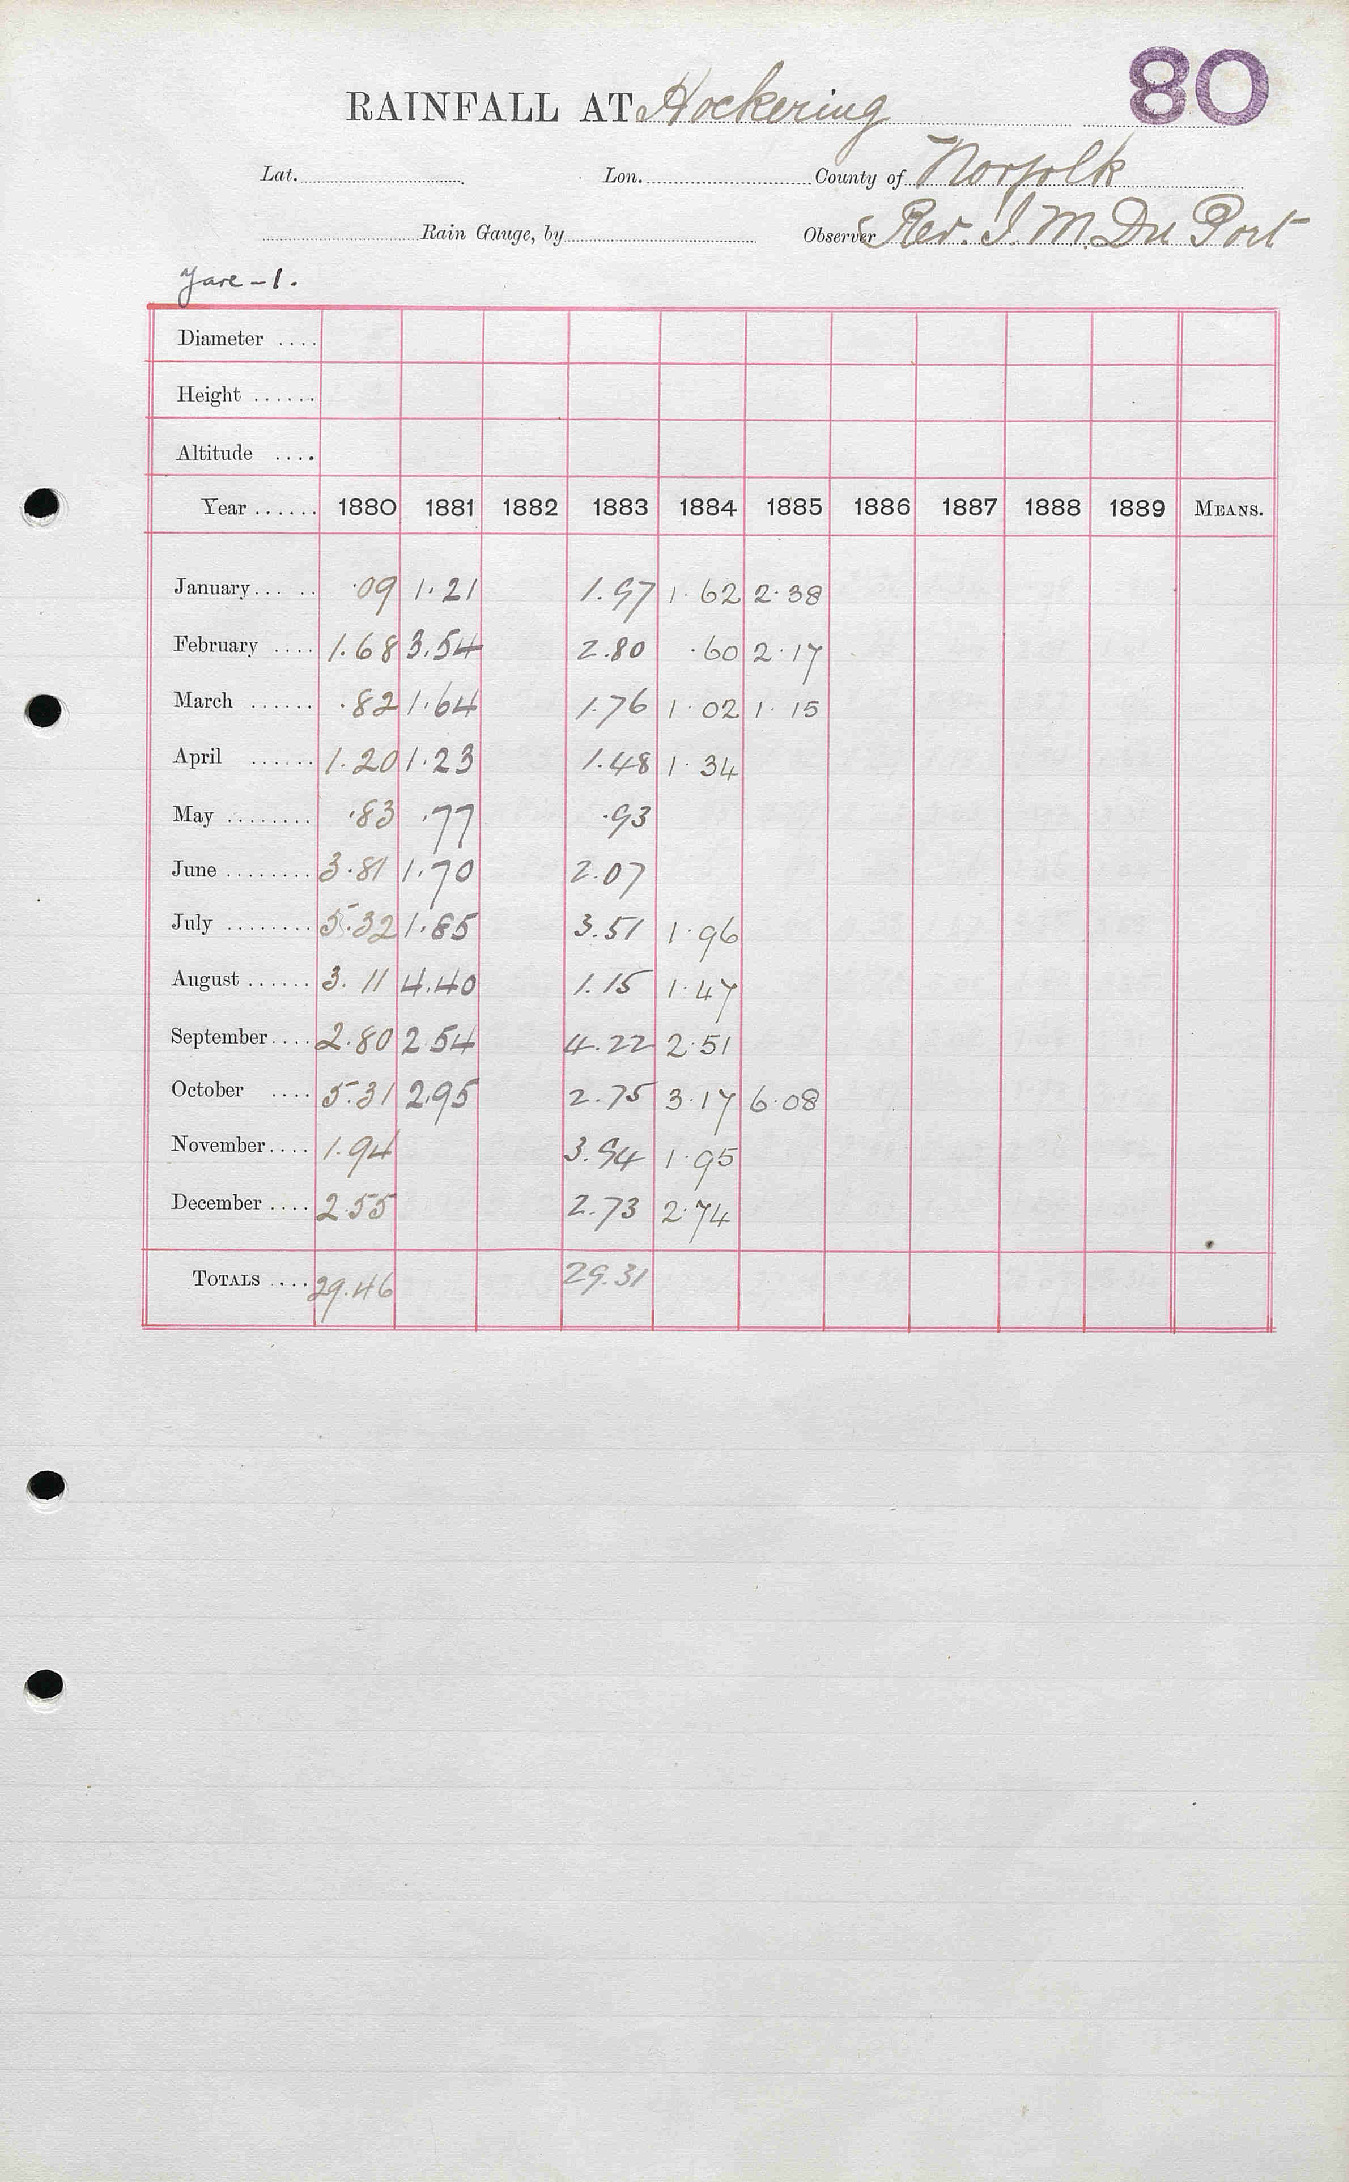 80
RAINFALL AT Hockering
Lat. Lon. County of Norfolk
Rain Gauge, by Observer Rev. J. M. Du Port
Yare - 1.
Diameter ....
Height ......
Altitude ....
Year ...... 1880 1881 1882 1883 1884 1885 1886 1887 1888 1889 MEANS.
January... .. .09 1.21 1.97 1.62 2.38
February .... 1.68 3.54 2.80 .60 2.17
March ...... .82 1.64 1.76 1.02 1.15
April ...... 1.20 1.23 1.48 1.34
May ........ .83 .77 .93
June ........ 3.81 1.70 2.07
July ........ 5.32 1.85 3.51 1.96
August ...... 3.11 4.40 1.15 1.47
September.... 2.80 2.54 4.22 2.51
October .... 5.31 2.95 2.75 3.17 6.08
November.... 1.94 3.94 1.95
December .... 2.55 2.73 2.74
TOTALS .... 29.46 29.31